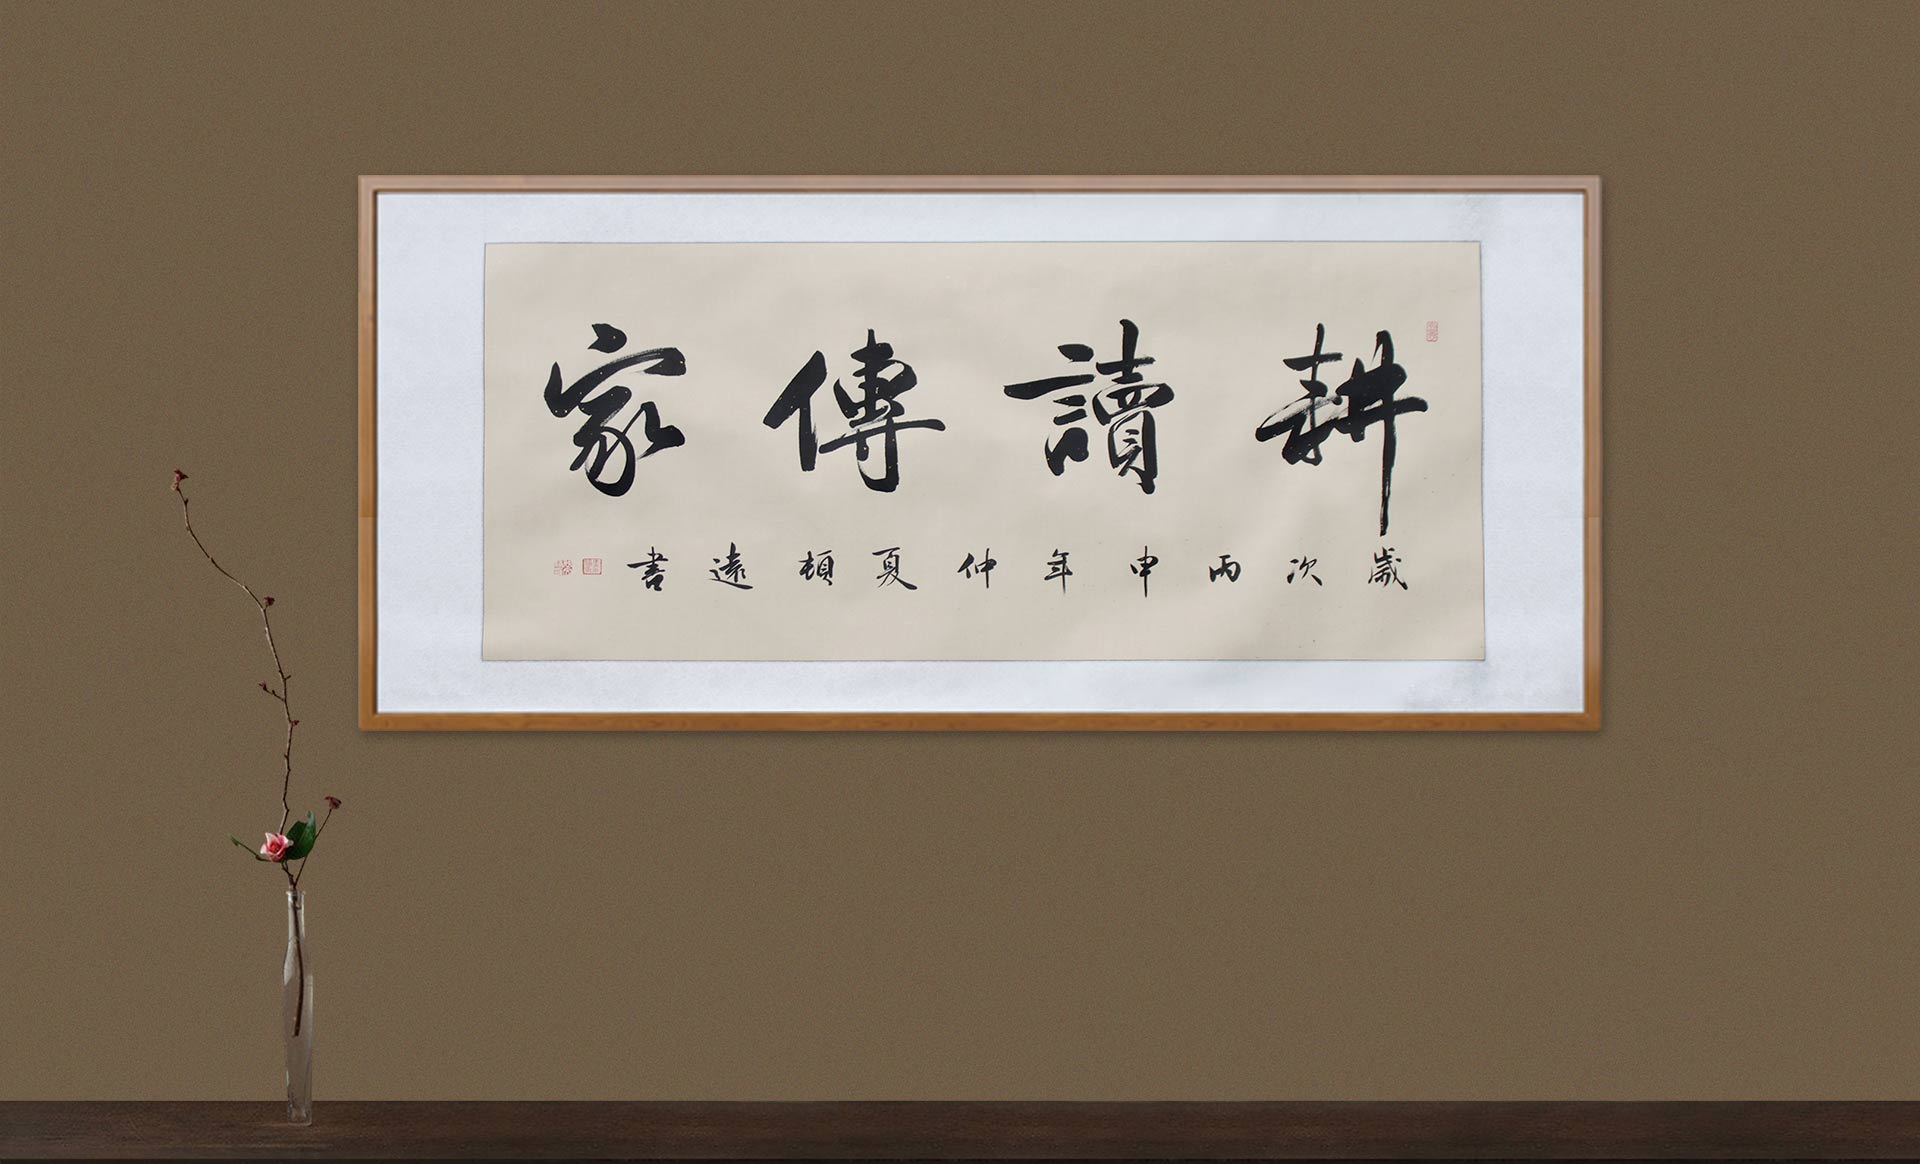 耕讀傳家
歲次丙申年仲夏頓遠書